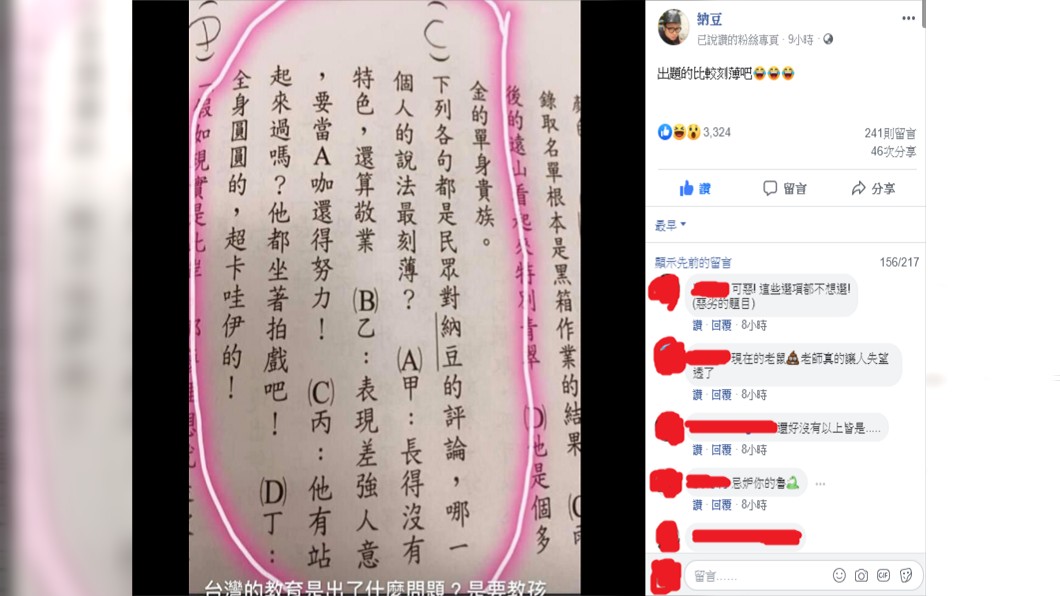 錄取名單根本是黑箱作業的結果
後的遠山看起來特別青翠 (D)他是個多
金的單身貴族。
(C) 下列各句都是民眾對納豆的評論，哪一
個人的說法最刻薄？ (A)甲：長得沒有
特色，還算敬業 (B)乙：表現差強人意
，要當A咖還得努力！ (C)丙：他有站
起來過嗎？他都坐著拍戲吧！ (D)丁：
全身圓圓的，超卡哇伊的！
(D) 假如現實是此岸
台灣的教育是出了什麼問題？是要教孩
納豆
已說讚的粉絲專頁 · 9小時 ·
出題的比較刻薄吧😂😂😂
3,324
241則留言
46次分享
讚 留言 分享
最早
顯示先前的留言 156/217
可惡! 這些選項都不想選!
(惡劣的題目)
讚 · 回覆 · 8小時
現在的老鼠💩老師真的讓人失望
透了
讚 · 回覆 · 8小時
還好沒有以上皆是.....
讚 · 回覆 · 8小時
忌妒你的魯🐍
讚 · 回覆 · 8小時
留言......
GIF